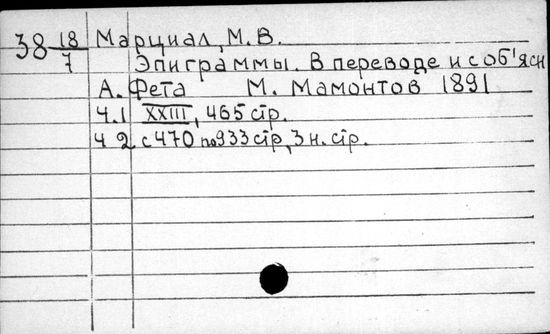 38 18/7 Марциал, М. В.
Эпиграммы. В переводе и с об'ясн
А. Фета М. Мамонтов 1891
Ч.1 XXIII, 465 стр.
Ч 2 с 470 по 933 стр, 3 н. стр.